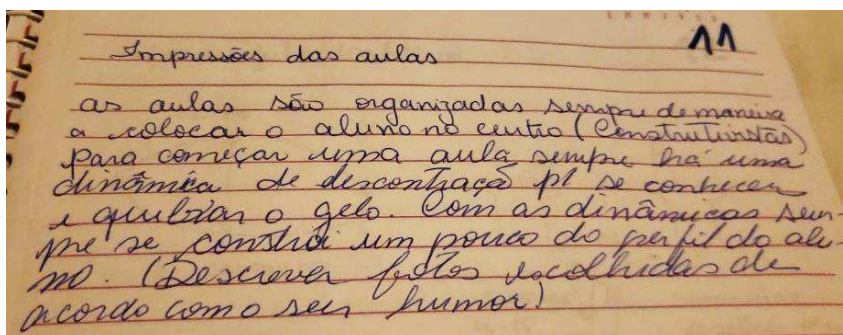 11
Impressões das aulas
as aulas são organizadas sempre de maneira
a colocar o aluno no centro (Construtivistas)
para começar uma aula sempre há uma
dinâmica de descontração p/ se conhecer
e quebrar o gelo. Com as dinâmicas sem-
pre se constrói um pouco do perfil do alu-
no. (Descrever fotos escolhidas de
acordo com o seu humor)